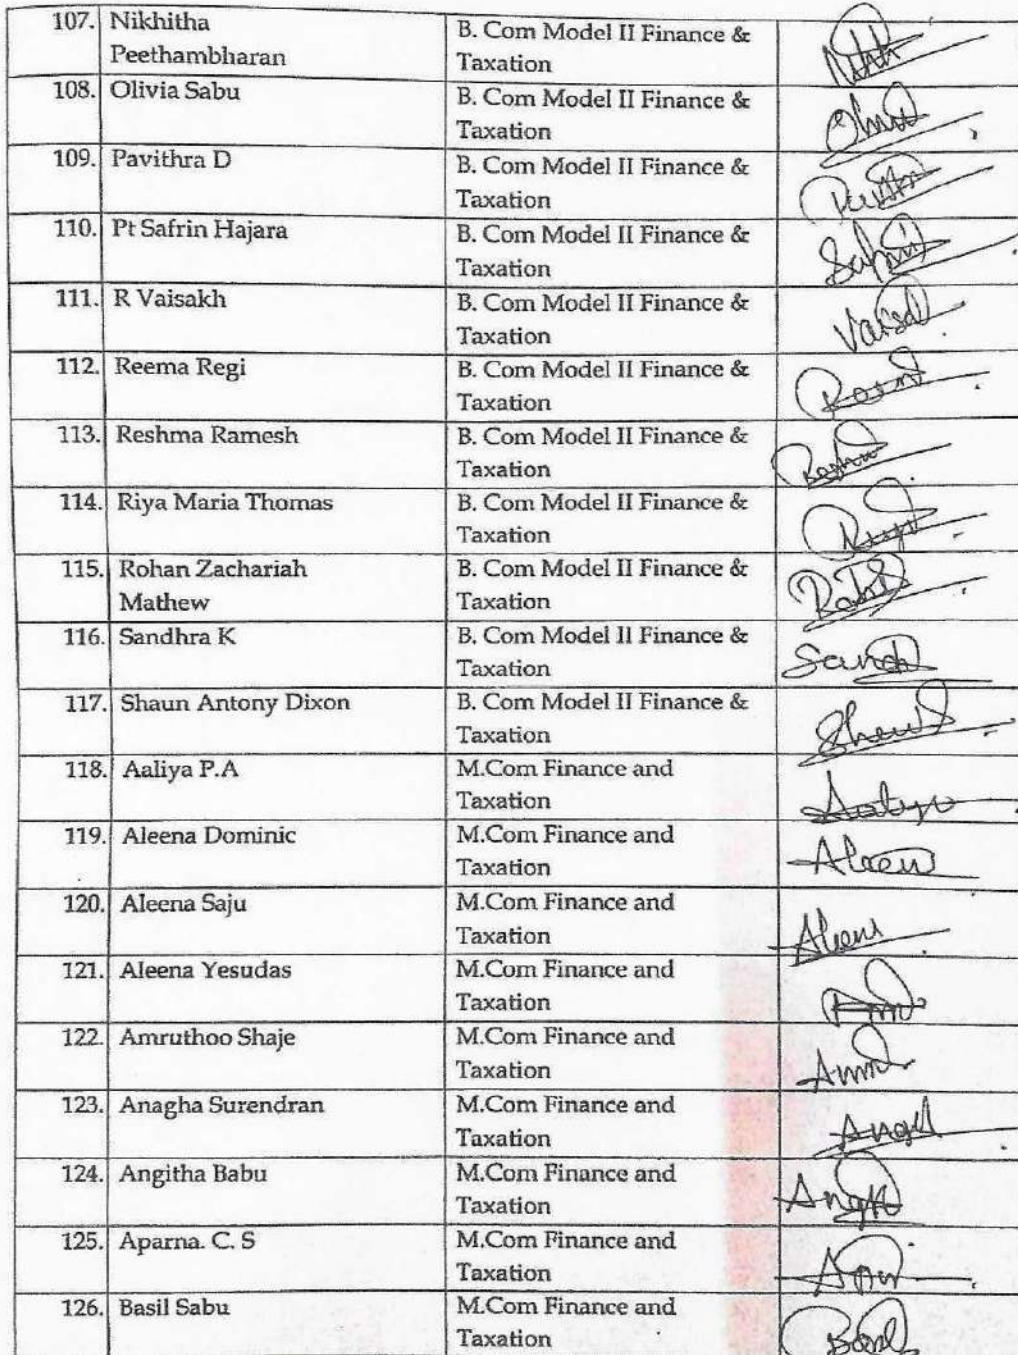 107. Nikhitha B. Com Model II Finance &
Peethambharan Taxation
108. Olivia Sabu B. Com Model II Finance &
Taxation
109. Pavithra D B. Com Model II Finance &
Taxation
110. Pt Safrin Hajara B. Com Model II Finance &
Taxation
111. R Vaisakh B. Com Model II Finance &
Taxation
112. Reema Regi B. Com Model II Finance &
Taxation
113. Reshma Ramesh B. Com Model II Finance &
Taxation
114. Riya Maria Thomas B. Com Model II Finance &
Taxation
115. Rohan Zachariah B. Com Model II Finance &
Mathew Taxation
116. Sandhra K B. Com Model II Finance &
Taxation
117. Shaun Antony Dixon B. Com Model II Finance &
Taxation
118. Aaliya P.A M.Com Finance and
Taxation
119. Aleena Dominic M.Com Finance and
Taxation
120. Aleena Saju M.Com Finance and
Taxation
121. Aleena Yesudas M.Com Finance and
Taxation
122. Amruthoo Shaje M.Com Finance and
Taxation
123. Anagha Surendran M.Com Finance and
Taxation
124. Angitha Babu M.Com Finance and
Taxation
125. Aparna. C. S M.Com Finance and
Taxation
126. Basil Sabu M.Com Finance and
Taxation